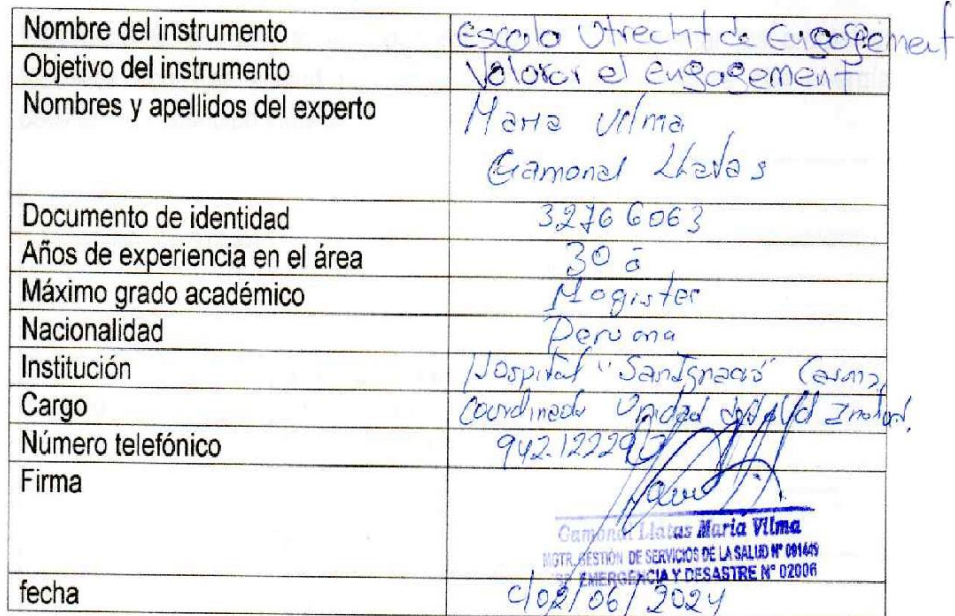 Nombre del instrumento Escala Utrecht de Engagement
Objetivo del instrumento Valorar el engagement
Nombres y apellidos del experto Maria Vilma
Gamonal Llatas
Documento de identidad 32766063
Años de experiencia en el área 30 a
Máximo grado académico Magister
Nacionalidad Peruana
Institución Hospital "San Ignacio"
Cargo Coordinadora Unidad
Número telefónico 942122290
Firma
Gamonal Llatas María Vilma
MGTR. GESTIÓN DE SERVICIOS DE LA SALUD N° 091649
EMERGENCIA Y DESASTRE N° 02006
fecha 02/06/2024